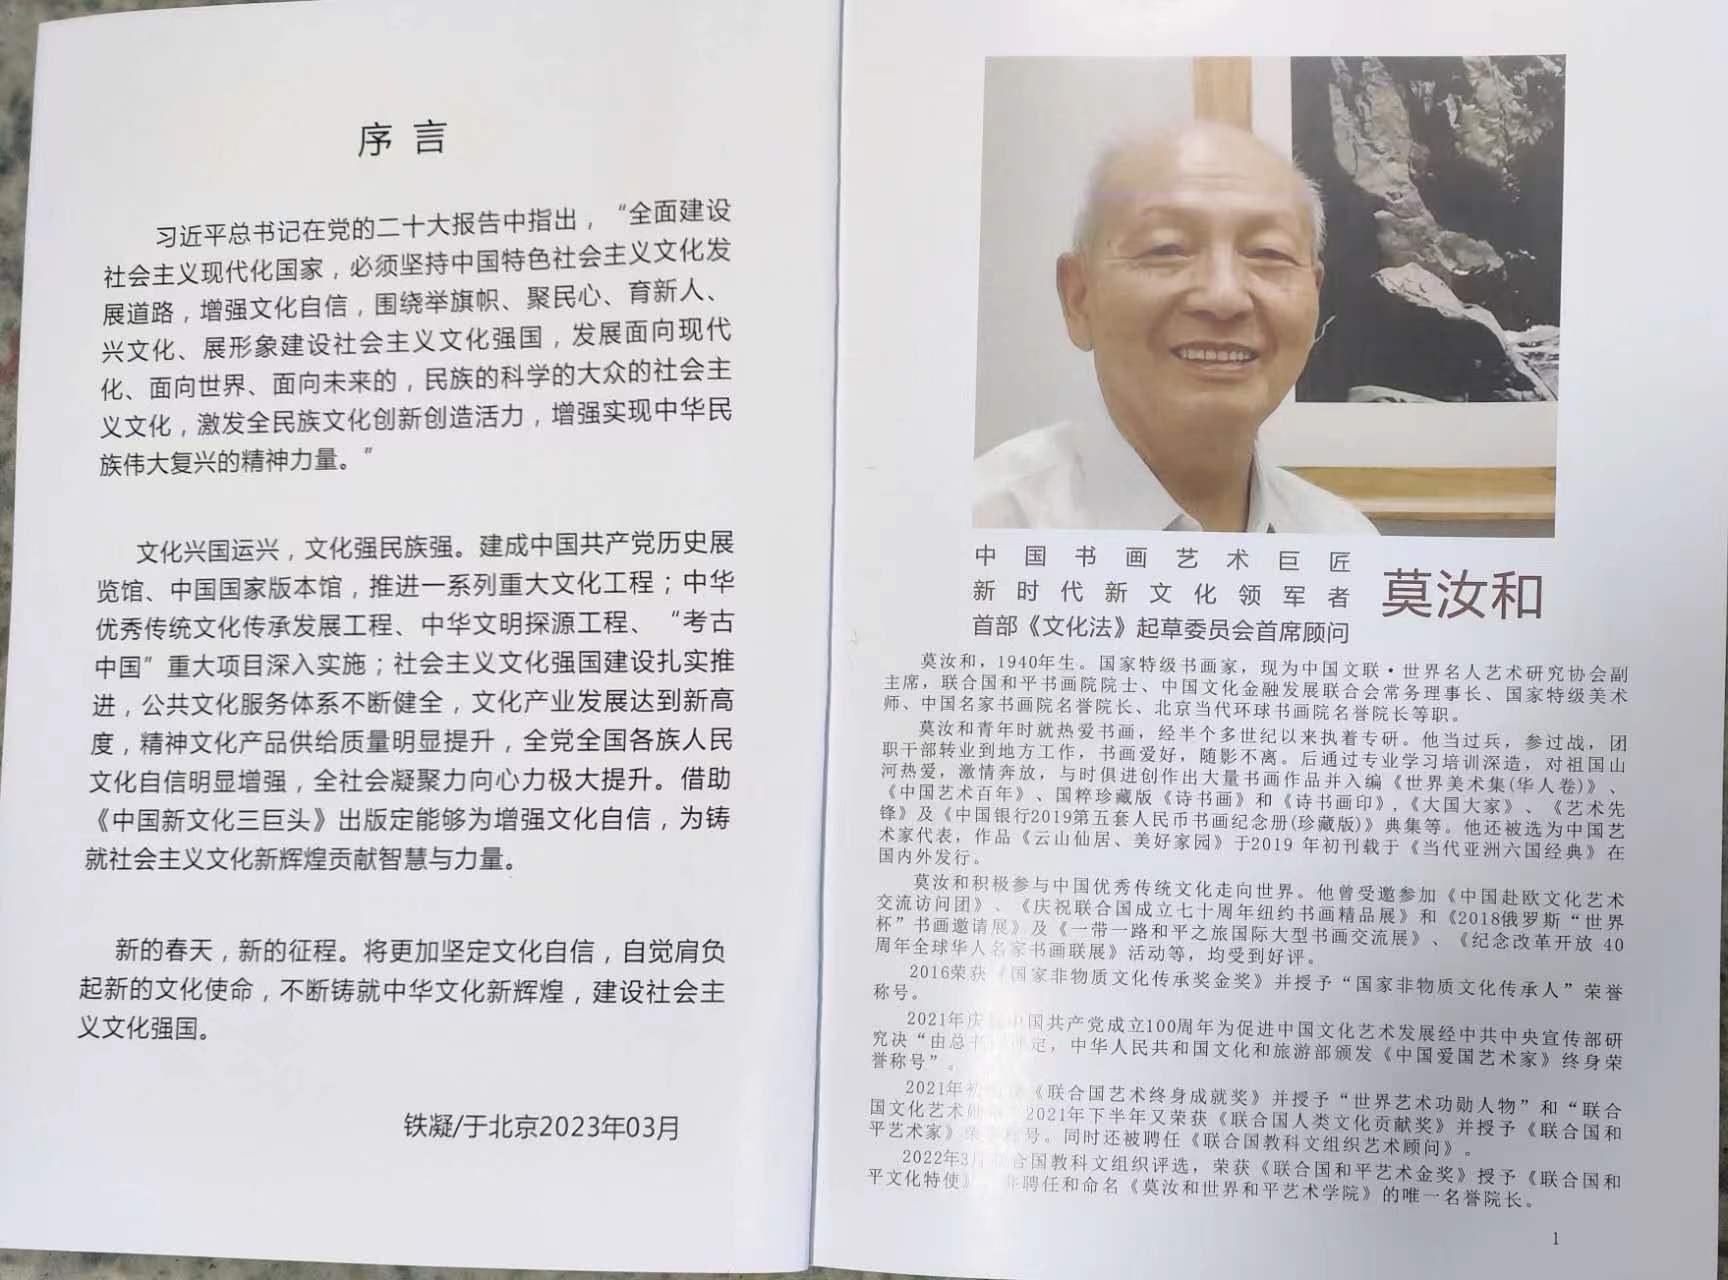 序言
习近平总书记在党的二十大报告中指出，“全面建设
社会主义现代化国家，必须坚持中国特色社会主义文化发
展道路，增强文化自信，围绕举旗帜、聚民心、育新人、
兴文化、展形象建设社会主义文化强国，发展面向现代
化、面向世界、面向未来的，民族的科学的大众的社会主
义文化，激发全民族文化创新创造活力，增强实现中华民
族伟大复兴的精神力量。”
文化兴国运兴，文化强民族强。建成中国共产党历史展
览馆、中国国家版本馆，推进一系列重大文化工程；中华
优秀传统文化传承发展工程、中华文明探源工程、“考古
中国”重大项目深入实施；社会主义文化强国建设扎实推
进，公共文化服务体系不断健全，文化产业发展达到新高
度，精神文化产品供给质量明显提升，全党全国各族人民
文化自信明显增强，全社会凝聚力向心力极大提升。借助
《中国新文化三巨头》出版定能够为增强文化自信，为铸
就社会主义文化新辉煌贡献智慧与力量。
新的春天，新的征程。将更加坚定文化自信，自觉肩负
起新的文化使命，不断铸就中华文化新辉煌，建设社会主
义文化强国。
铁凝/于北京2023年03月
中国书画艺术巨匠
新时代新文化领军者
首部《文化法》起草委员会首席顾问
莫汝和
莫汝和，1940年生。国家特级书画家，现为中国文联·世界名人艺术研究协会副
主席，联合国和平书画院院士、中国文化金融发展联合会常务理事长、国家特级美术
师、中国名家书画院名誉院长、北京当代环球书画院名誉院长等职。
莫汝和青年时就热爱书画，经半个多世纪以来执着专研。他当过兵，参过战，团
职干部转业到地方工作，书画爱好，随影不离。后通过专业学习培训深造，对祖国山
河热爱，激情奔放，与时俱进创作出大量书画作品并入编《世界美术集(华人卷)》、
《中国艺术百年》、国粹珍藏版《诗书画》和《诗书画印》，《大国大家》、《艺术先
锋》及《中国银行2019第五套人民币书画纪念册(珍藏版)》典集等。他还被选为中国艺
术家代表，作品《云山仙居、美好家园》于2019 年初刊载于《当代亚洲六国经典》在
国内外发行。
莫汝和积极参与中国优秀传统文化走向世界。他曾受邀参加《中国赴欧文化艺术
交流访问团》、《庆祝联合国成立七十周年纽约书画精品展》和《2018俄罗斯“世界
杯”书画邀请展》及《一带一路和平之旅国际大型书画交流展》、《纪念改革开放 40
周年全球华人名家书画联展》活动等，均受到好评。
2016荣获《国家非物质文化传承奖金奖》并授予“国家非物质文化传承人”荣誉
称号。
2021年庆 中国共产党成立100周年为促进中国文化艺术发展经中共中央宣传部研
究决“由总 定，中华人民共和国文化和旅游部颁发《中国爱国艺术家》终身荣
誉称号”。
2021年初 《联合国艺术终身成就奖》并授予“世界艺术功勋人物”和“联合
国文化艺术 2021年下半年又荣获《联合国人类文化贡献奖》并授予《联合国和
平艺术家》 号。同时还被聘任《联合国教科文组织艺术顾问》。
2022年3月 合国教科文组织评选，荣获《联合国和平艺术金奖》授予《联合国和
平文化特使》 聘任和命名《莫汝和世界和平艺术学院》的唯一名誉院长。
1